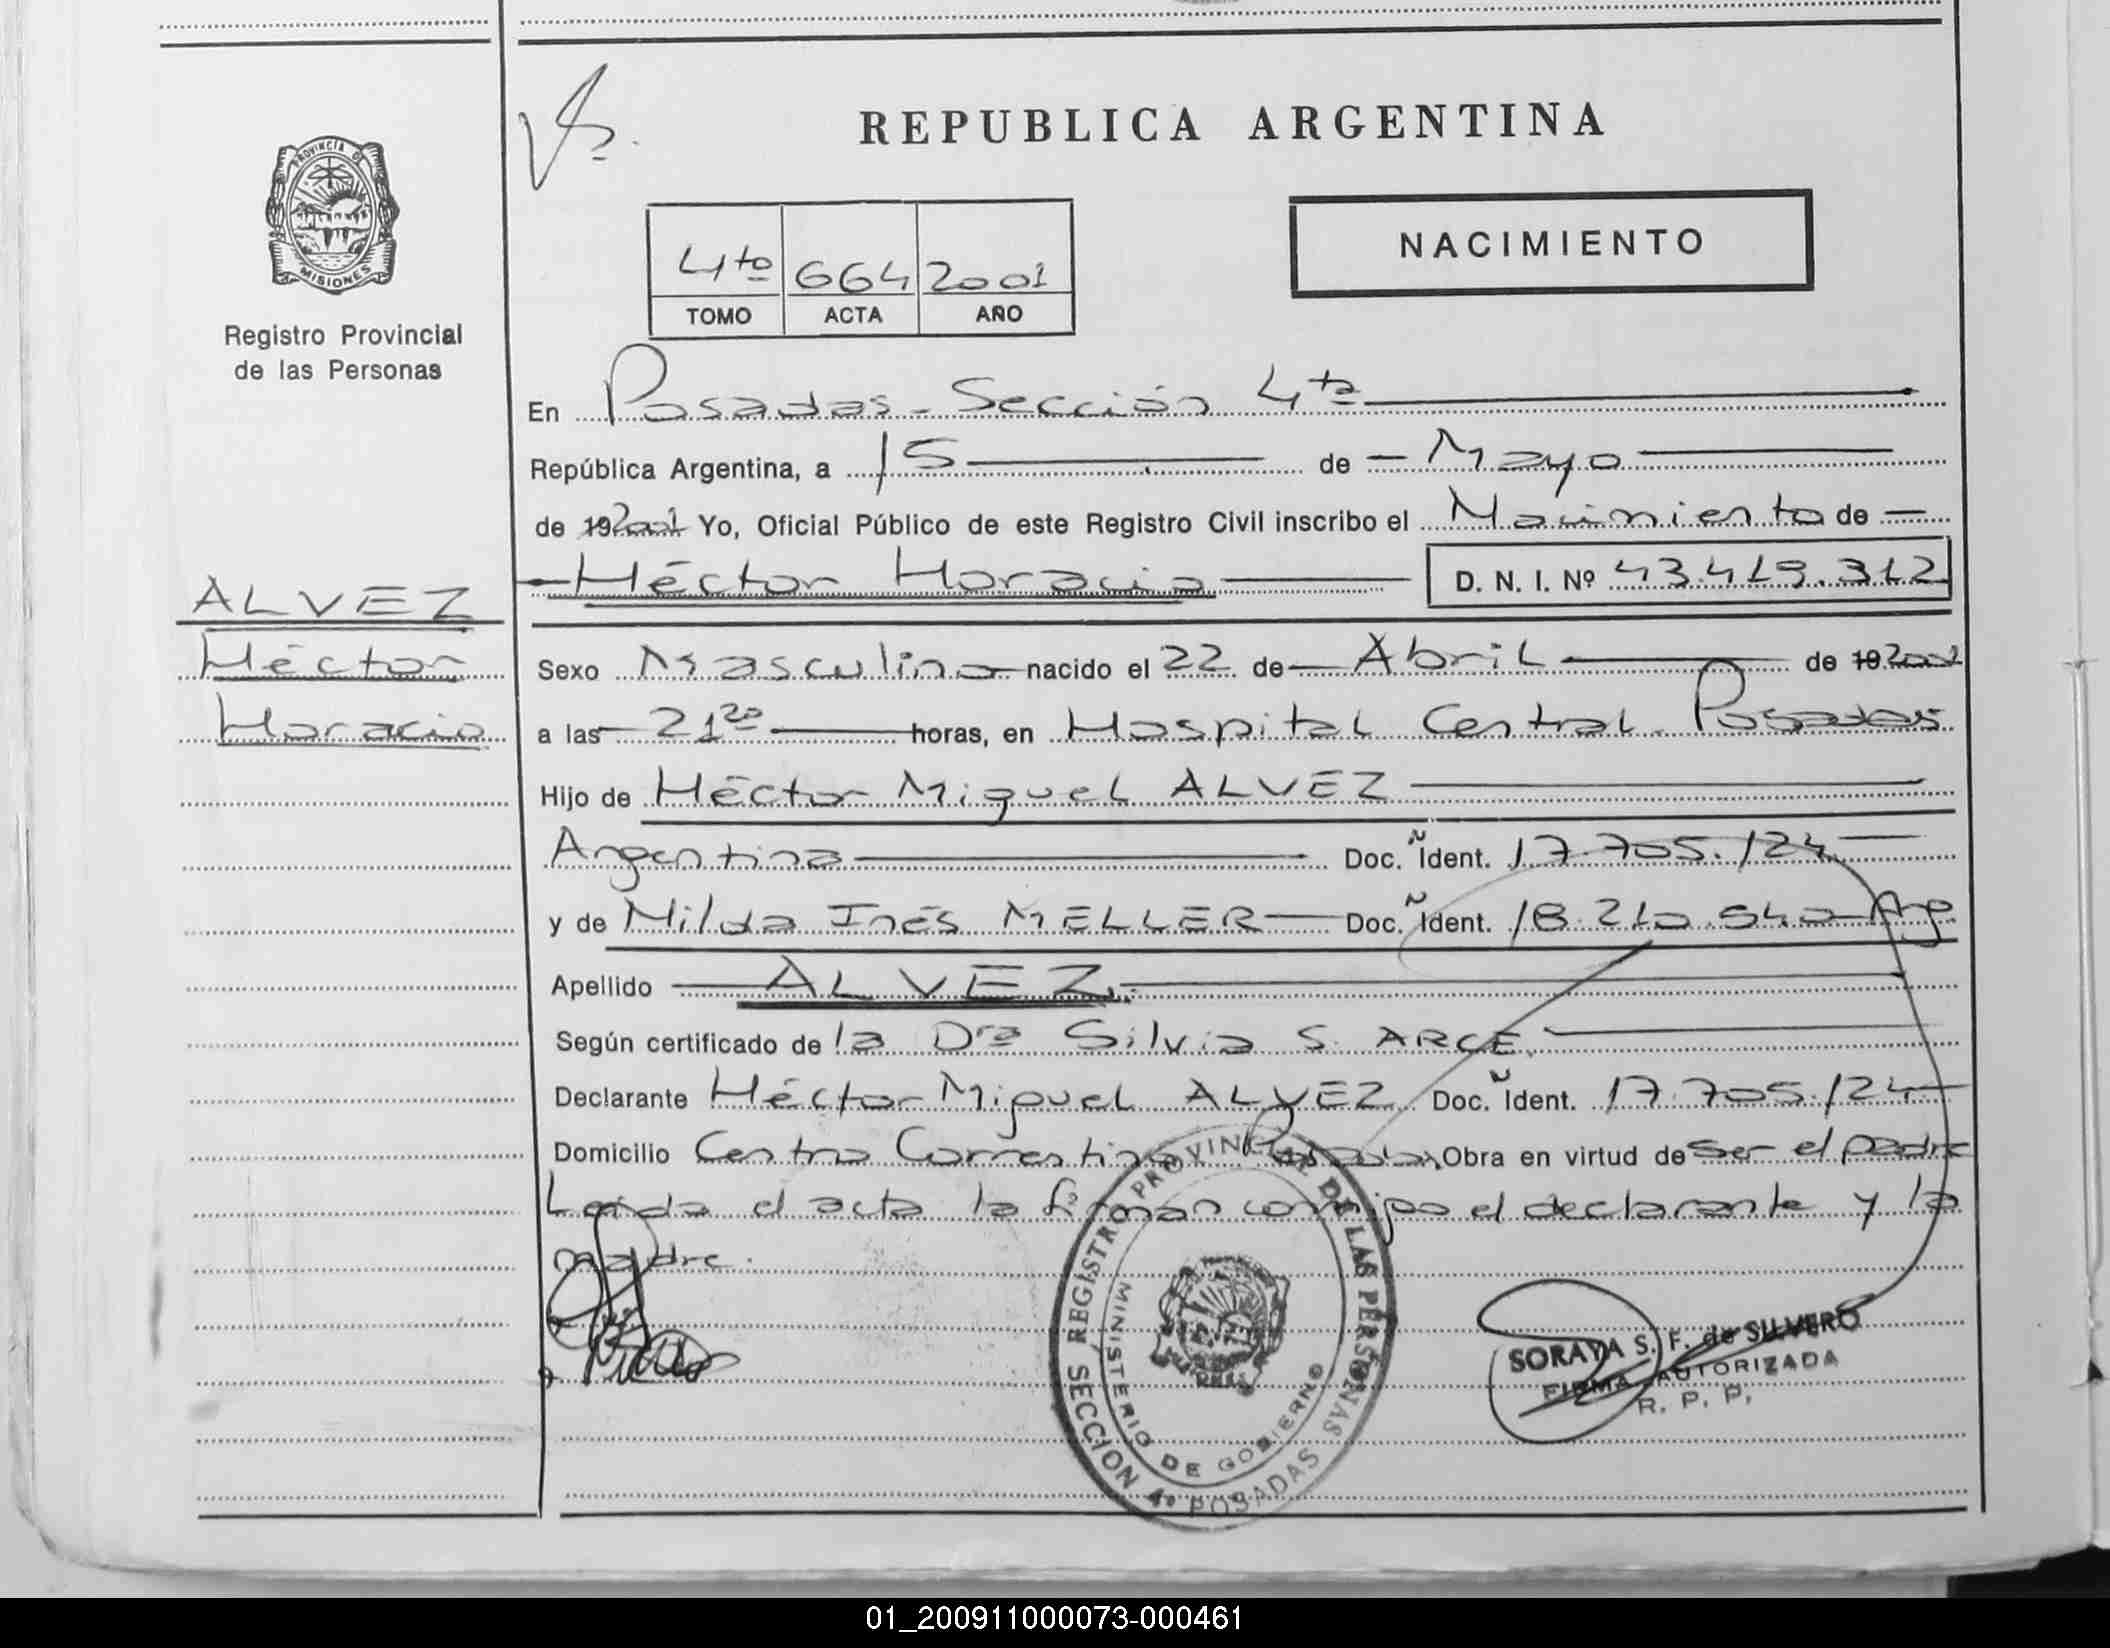 REPUBLICA ARGENTINA
PROVINCIA DE
MISIONES
Registro Provincial
de las Personas
NACIMIENTO
4to 664 2001
TOMO ACTA AÑO
En Posadas - Sección 4ta
República Argentina, a 15 de Mayo
de 19 2001 Yo, Oficial Público de este Registro Civil inscribo el Nacimiento de
Héctor Horacio D. N. I. Nº 43.419.312
ALVEZ
Héctor
Horacio
Sexo Masculino nacido el 22 de Abril de 19 2001
a las 21 20 horas, en Hospital Central - Posadas
Hijo de Héctor Miguel ALVEZ
Argentina Doc. Ident. 17.705.124
y de Nilda Inés MELLER Doc. Ident. 18.210.540 Arg.
Apellido ALVEZ.
Según certificado de la Dra Silvia S. ARCE.
Declarante Héctor Miguel ALVEZ Doc. Ident. 17.705.124
Domicilio Centro Correntino Posadas Obra en virtud de ser el padre
Leída el acta la firman conmigo el declarante y la
madre.
REGISTRO PROVINCIAL DE LAS PERSONAS
MINISTERIO DE GOBIERNO
SECCION 4º POSADAS
SORAYA S. F. de SILVERO
FIRMA AUTORIZADA
R. P. P.
01_200911000073-000461